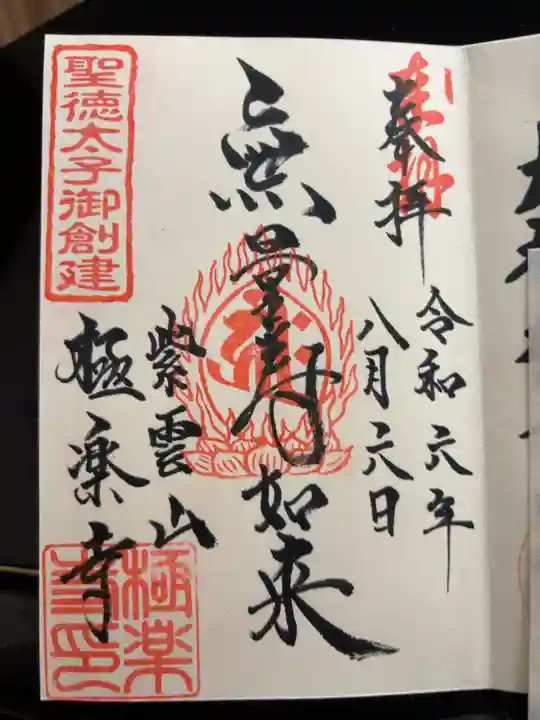 奉拝
令和六年
八月六日
無量寿如来
紫雲山
極楽寺
聖徳太子御創建
極楽寺印